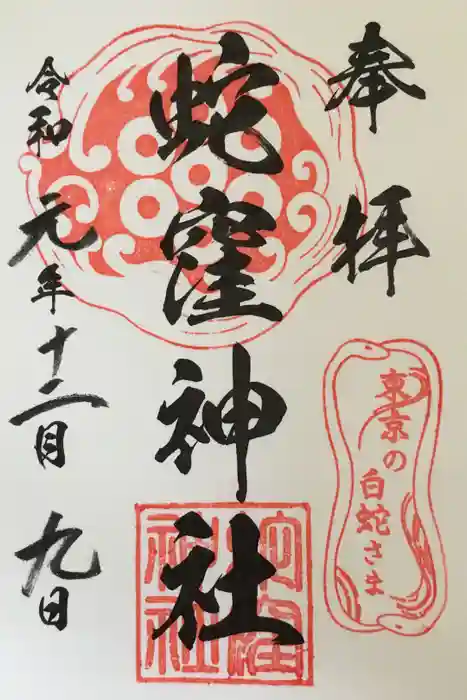 奉拝
東京の
白蛇さま
蛇窪神社
蛇窪
神社
令和元年十二月九日